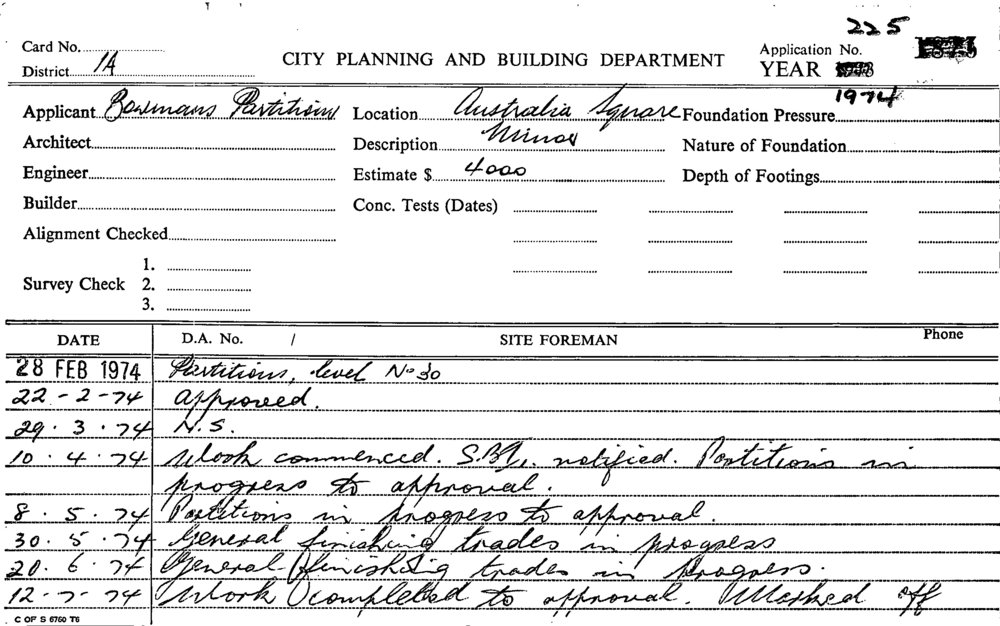 225
Card No.
CITY PLANNING AND BUILDING DEPARTMENT
Application No.
District 1A
YEAR
1974
Applicant Bowmans Partitions
Location Australia Square
Foundation Pressure
Architect
Description Minor
Nature of Foundation
Engineer
Estimate $ 4000
Depth of Footings
Builder
Conc. Tests (Dates)
Alignment Checked
Survey Check
1.
2.
3.
DATE
D.A. No. /
SITE FOREMAN
Phone
28 FEB 1974 Partitions, level No 30
22-2-74 approved.
29.3.74 N.S.
10.4.74 Work commenced. notified. Partitions in
progress to approval.
8.5.74 Partitions in progress to approval.
30.5.74 General finishing trades in progress
20.6.74 General finishing trades in progress.
12-7-74 Work completed to approval. Marked off
C OF S 6760 T6